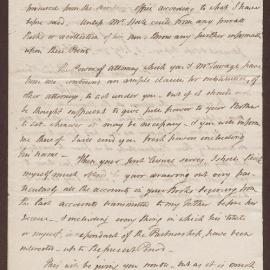 produced from the office according to what I have
before said. Unless Mr. Hole could from any private
Book or recollection of his own throw any further information
upon these Points
The Power of attorney which you & Mr. Savage have
been sent contains an ample clause for substitution of
other attorney, to act under you. But if it should
be thought sufficient to give full power to your Brother
to act, however it may be discrepancy if you will inform
me thereof I will send you fresh powers including
his name. When your post Covers serves, I shall think
myself much obliged to your drawing out very par-
ticularly all the accounts in your Books beginning from
the last accounts transmitted to my Father before his
decease & including every thing in which his Estate
or myself in dependant of the Partnership, have been
interested upto the present Period.
This will be giving you trouble, but as it is much